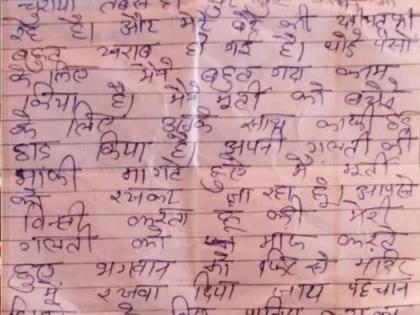 चुराया तबसे
रहे है। और मेरे बेटे की तबियत भी
बहुत खराब हो गई है। थोडे पैसों
के लिए मैंने बहुत गंदा काम
किया है। मैंने मूर्ती को बेचने
के लिए उसके साथ काफी छेड
छाड किया है। अपनी गलती की
माफी मांगते हुए मैं मूर्ती
को रखकर जा रहा हूं। आपसे
विनती करता हूं की मेरी
गलती को माफ करते
हुए भगवान को फिर से मंदिर
में रखवा दिया जाय पहचान